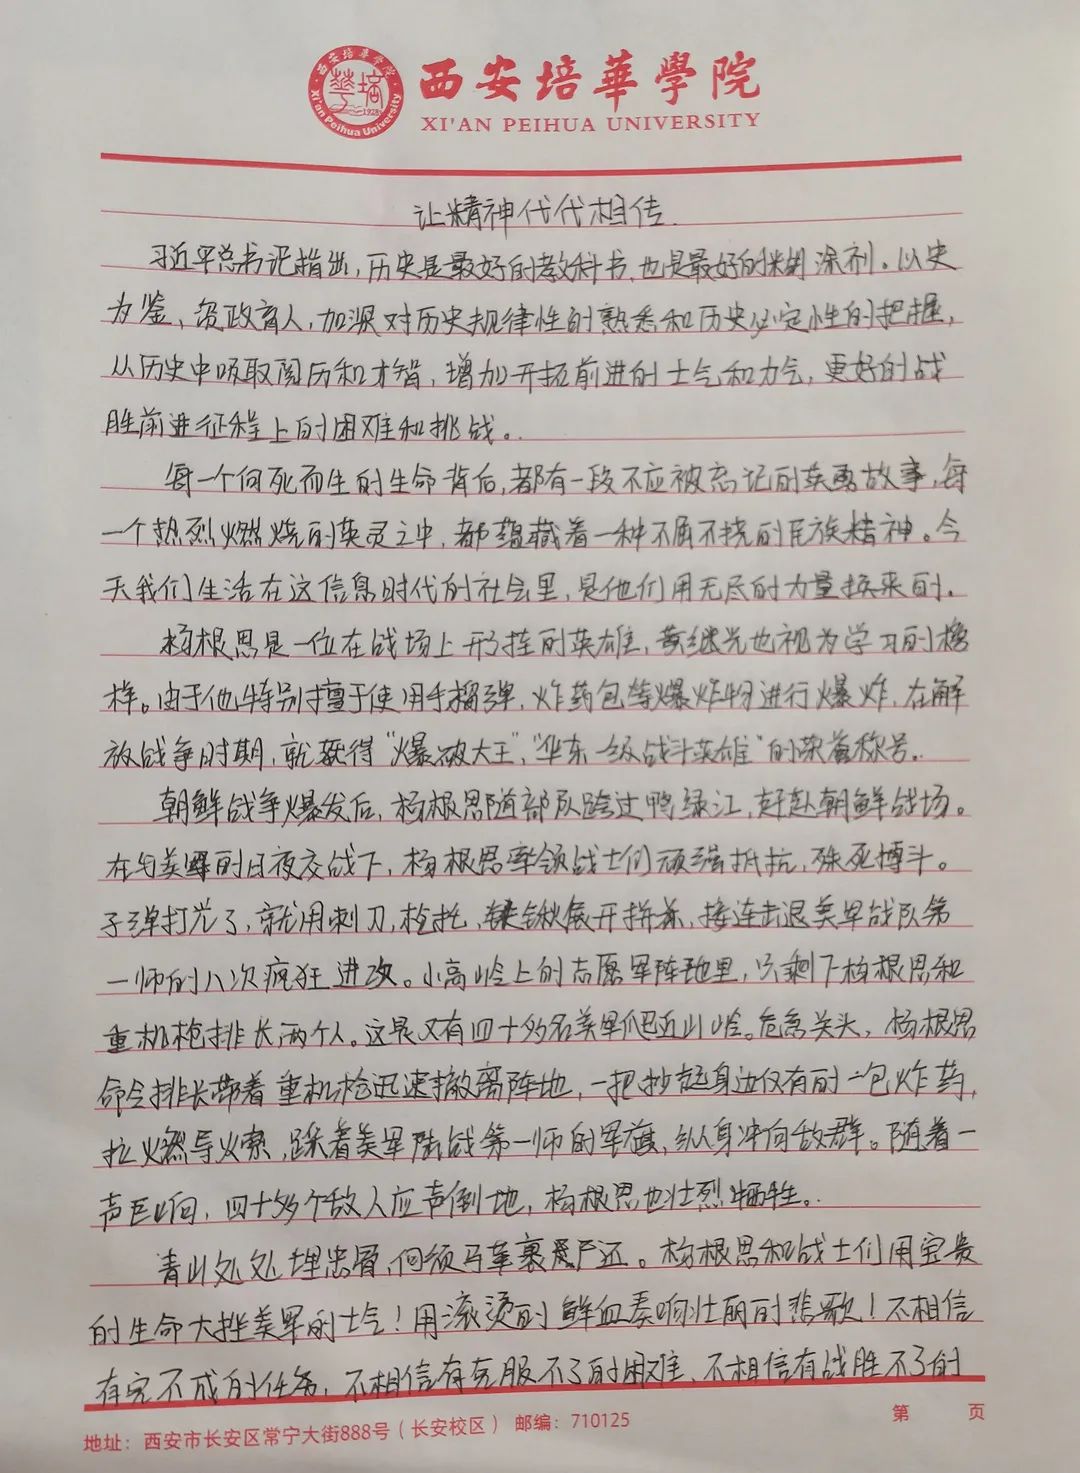 西安培華學院
XI'AN PEIHUA UNIVERSITY
西安培華學院
華培
1928
Xi'an Peihua University
让精神代代相传
习近平总书记指出,历史是最好的教科书,也是最好的糊涂剂。以史
为鉴、资政育人,加深对历史规律性的熟悉和历史必定性的把握,
从历史中吸取阅历和才智,增加开拓前进的士气和力气,更好的战
胜前进征程上的困难和挑战。
每一个向死而生的生命背后,都有一段不应被忘记的英勇故事,每
一个热烈燃烧的英灵之中,都蕴藏着一种不屈不挠的民族精神。今
天我们生活在这信息时代的社会里,是他们用无尽的力量换来的.
杨根思是一位在战场上 的英雄,黄继光也视为学习的榜
样。由于他特别擅于使用手榴弹,炸药包等爆炸物进行爆炸,在解
放战争时期,就获得“爆破大王”,“华东一级战斗英雄”的荣誉称号.
朝鲜战争爆发后,杨根思随部队跨过鸭绿江,赶赴朝鲜战场。
在与美军的日夜交战下,杨根思率领战士们顽强抵抗,殊死搏斗。
子弹打光了,就用刺刀,枪托,铁锹展开拼杀,接连击退美军战队第
一师的八次疯狂进攻。小高岭上的志愿军阵地里,只剩下杨根思和
重机枪排长两个人。这是又有四十多名美军爬近山岭。危急关头,杨根思
命令排长带着重机枪迅速撤离阵地,一把抄起身边仅有的一包炸药,
拉燃导火索,踩着美军陆战第一师的军旗,纵身冲向敌群。随着一
声巨响,四十多个敌人应声倒地,杨根思也壮烈牺牲。
青山处处埋忠骨,何须马革裹 严还。杨根思和战士们用宝贵
的生命大挫美军的士气!用滚烫的鲜血奏响壮丽的悲歌!不相信
有完不成的任务,不相信有克服不了的困难,不相信有战胜不了的
第 页
地址：西安市长安区常宁大街888号（长安校区） 邮编：710125